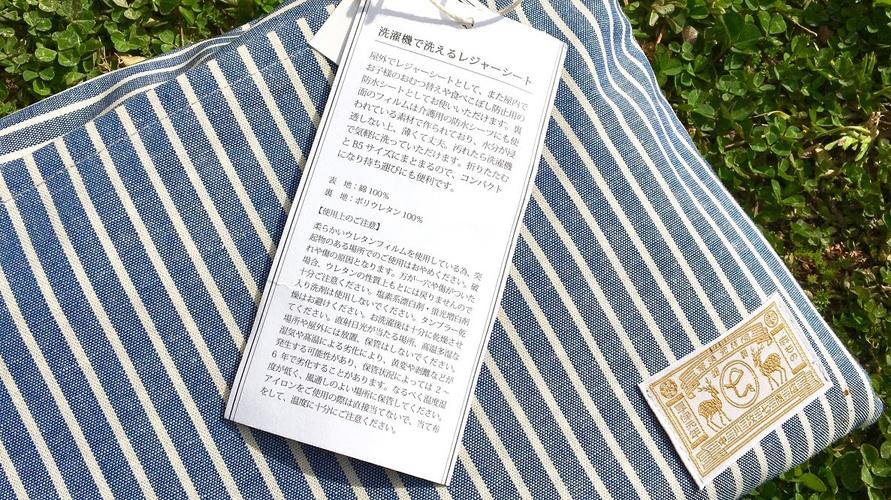 洗濯機で洗えるレジャーシート
屋外でレジャーシートとして、また屋内で
お子様のおむつ替えや食べこぼし防止用の
防水シートとしてお使いいただけます。裏
面のフィルムは介護用の防水シーツにも使
われている素材で作られており、水分が浸
透しない上、薄くて丈夫。汚れたら洗濯機
で気軽に洗っていただけます。折りたたむ
とB5サイズにまとまるので、コンパクト
になり持ち運びにも便利です。
表 地：綿 100%
裏 地：ポリウレタン 100%
【使用上のご注意】
柔らかいウレタンフィルムを使用している為、突
起物のある場所でのご使用はおやめください。破
れや傷の原因となります。万が一穴や傷がついた
場合、ウレタンの性質上もとには戻りませんので
十分ご注意ください。塩素系漂白剤・蛍光増白剤
入り洗剤は使用しないでください。タンブラー乾
燥はお避けください。お洗濯後は十分に乾燥させ
てください。直射日光が当たる場所、高温多湿な
場所や屋外には放置、保管はしないでください。
湿気や高温による劣化により、黄変や剥離などが
発生する可能性があり、保管状況によっては2～
6年で劣化することがあります。なるべく温度湿
度が低く、風通しのよい場所に保管してください。
アイロンをご使用の際は直接当てないで、当て布
をして、温度に十分にご注意ください。